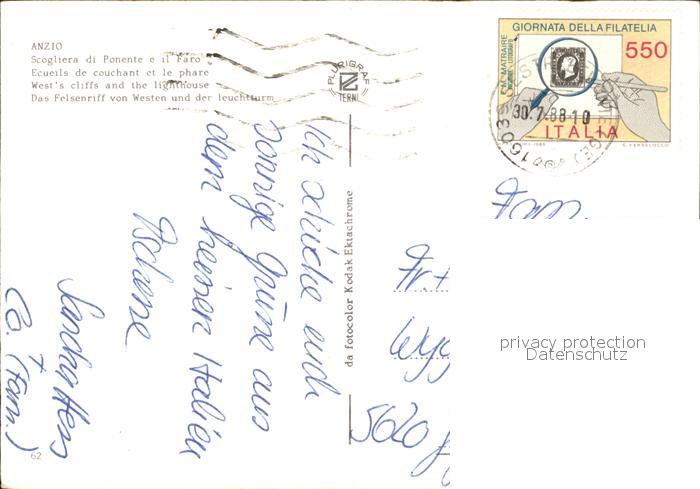 ANZIO
Scogliera di Ponente e il Faro
Ecueils de couchant et le phare
West's cliffs and the lighthouse
Das Felsenriff von Westen und der leuchtturm
PLURIGRAF
TERNI
GIORNATA DELLA FILATELIA
550
F. M. MATRAIRE
ITALIA
30.7.88-10
Ich schicke euch
sonnige Grüsse aus
dem heissen Italien
Tschüsse
Sandra Hess
+
Co. (Fam.)
da fotocolor Kodak Ektachrome
Fr. +
Wyg
5620
privacy protection
Datenschutz
62